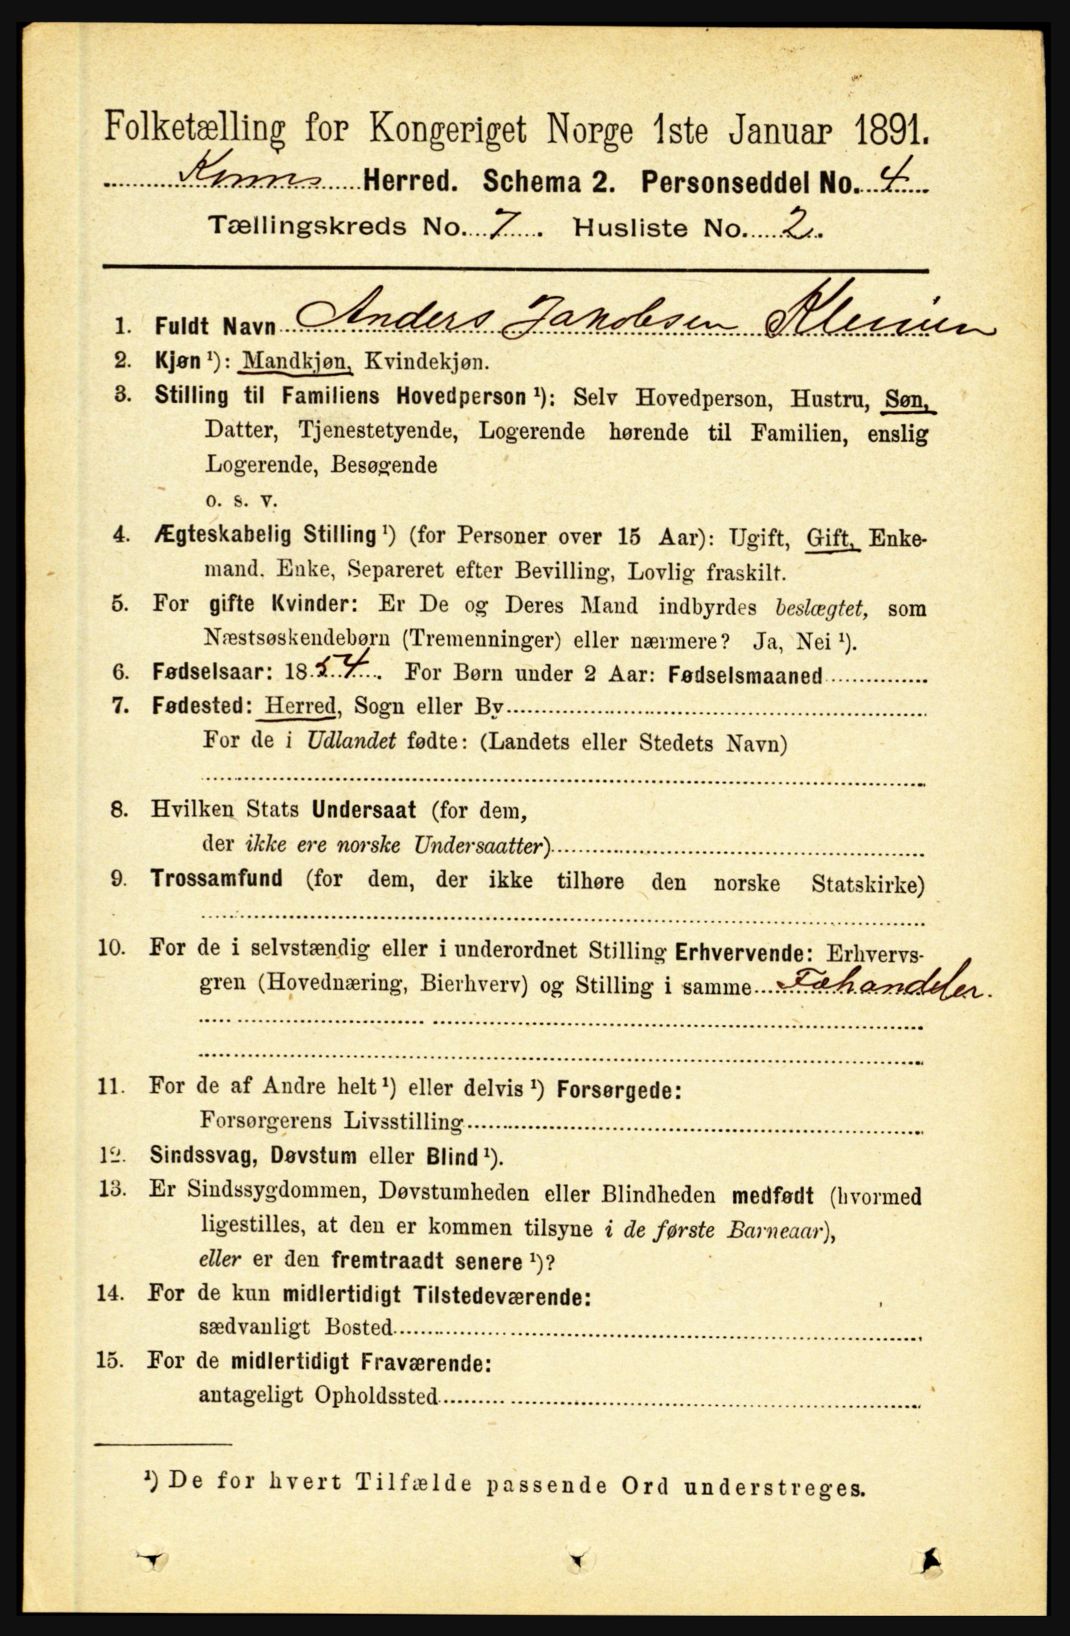 Folketælling for Kongeriget Norge 1ste Januar 1891.
Kinns Herred. Schema 2. Personseddel No. 4
Tællingskreds No. 7. Husliste No. 2.
1. Fuldt Navn Anders Jakobsen
2. Kjøn ¹): Mandkjøn, Kvindekjøn.
3. Stilling til Familiens Hovedperson ¹): Selv Hovedperson, Hustru, Søn,
Datter, Tjenestetyende, Logerende hørende til Familien, enslig
Logerende, Besøgende
o. s. v.
4. Ægteskabelig Stilling ¹) (for Personer over 15 Aar): Ugift, Gift, Enke-
mand, Enke, Separeret efter Bevilling, Lovlig fraskilt.
5. For gifte Kvinder: Er De og Deres Mand indbyrdes beslægtet, som
Næstsøskendebørn (Tremenninger) eller nærmere? Ja, Nei ¹).
6. Fødselsaar: 1854. For Børn under 2 Aar: Fødselsmaaned
7. Fødested: Herred, Sogn eller By
For de i Udlandet fødte: (Landets eller Stedets Navn)
8. Hvilken Stats Undersaat (for dem,
der ikke ere norske Undersaatter)
9. Trossamfund (for dem, der ikke tilhøre den norske Statskirke)
10. For de i selvstændig eller i underordnet Stilling Erhvervende: Erhvervs-
gren (Hovednæring, Bierhverv) og Stilling i samme Fæhandeler.
11. For de af Andre helt ¹) eller delvis ¹) Forsørgede:
Forsørgerens Livsstilling
12. Sindssvag, Døvstum eller Blind ¹).
13. Er Sindssygdommen, Døvstumheden eller Blindheden medfødt (hvormed
ligestilles, at den er kommen tilsyne i de første Barneaar),
eller er den fremtraadt senere ¹)?
14. For de kun midlertidigt Tilstedeværende:
sædvanligt Bosted
15. For de midlertidigt Fraværende:
antageligt Opholdssted
¹) De for hvert Tilfælde passende Ord understreges.